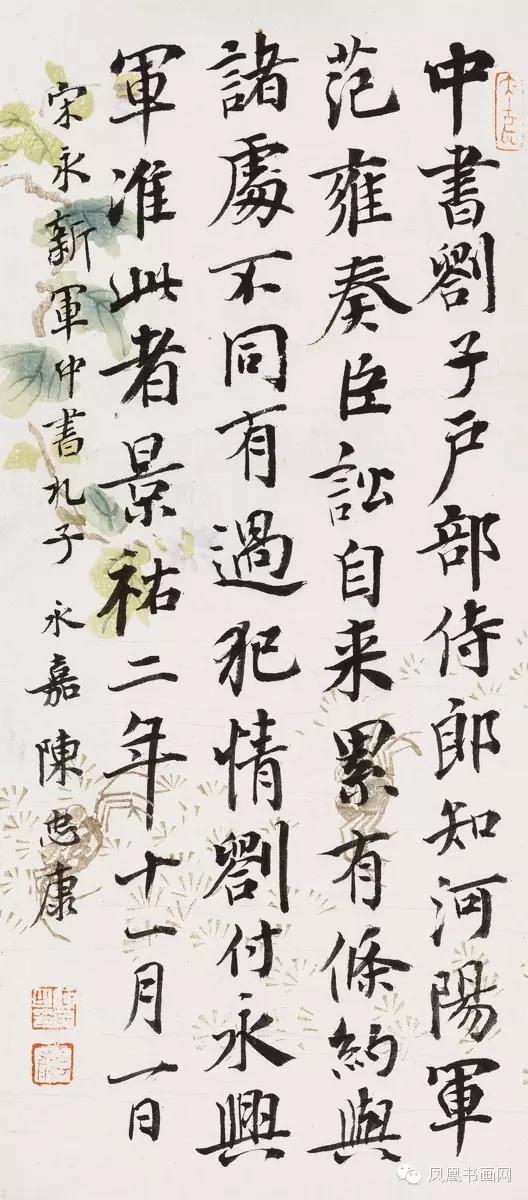 中書劄子戶部侍郎知河陽軍
范雍奏臣訟自来累有條約與
諸處不同有過犯情劄付永興
軍准此者景祐二年十一月一日
宋永新軍中書札子 永嘉陳忠康
凤凰书画网